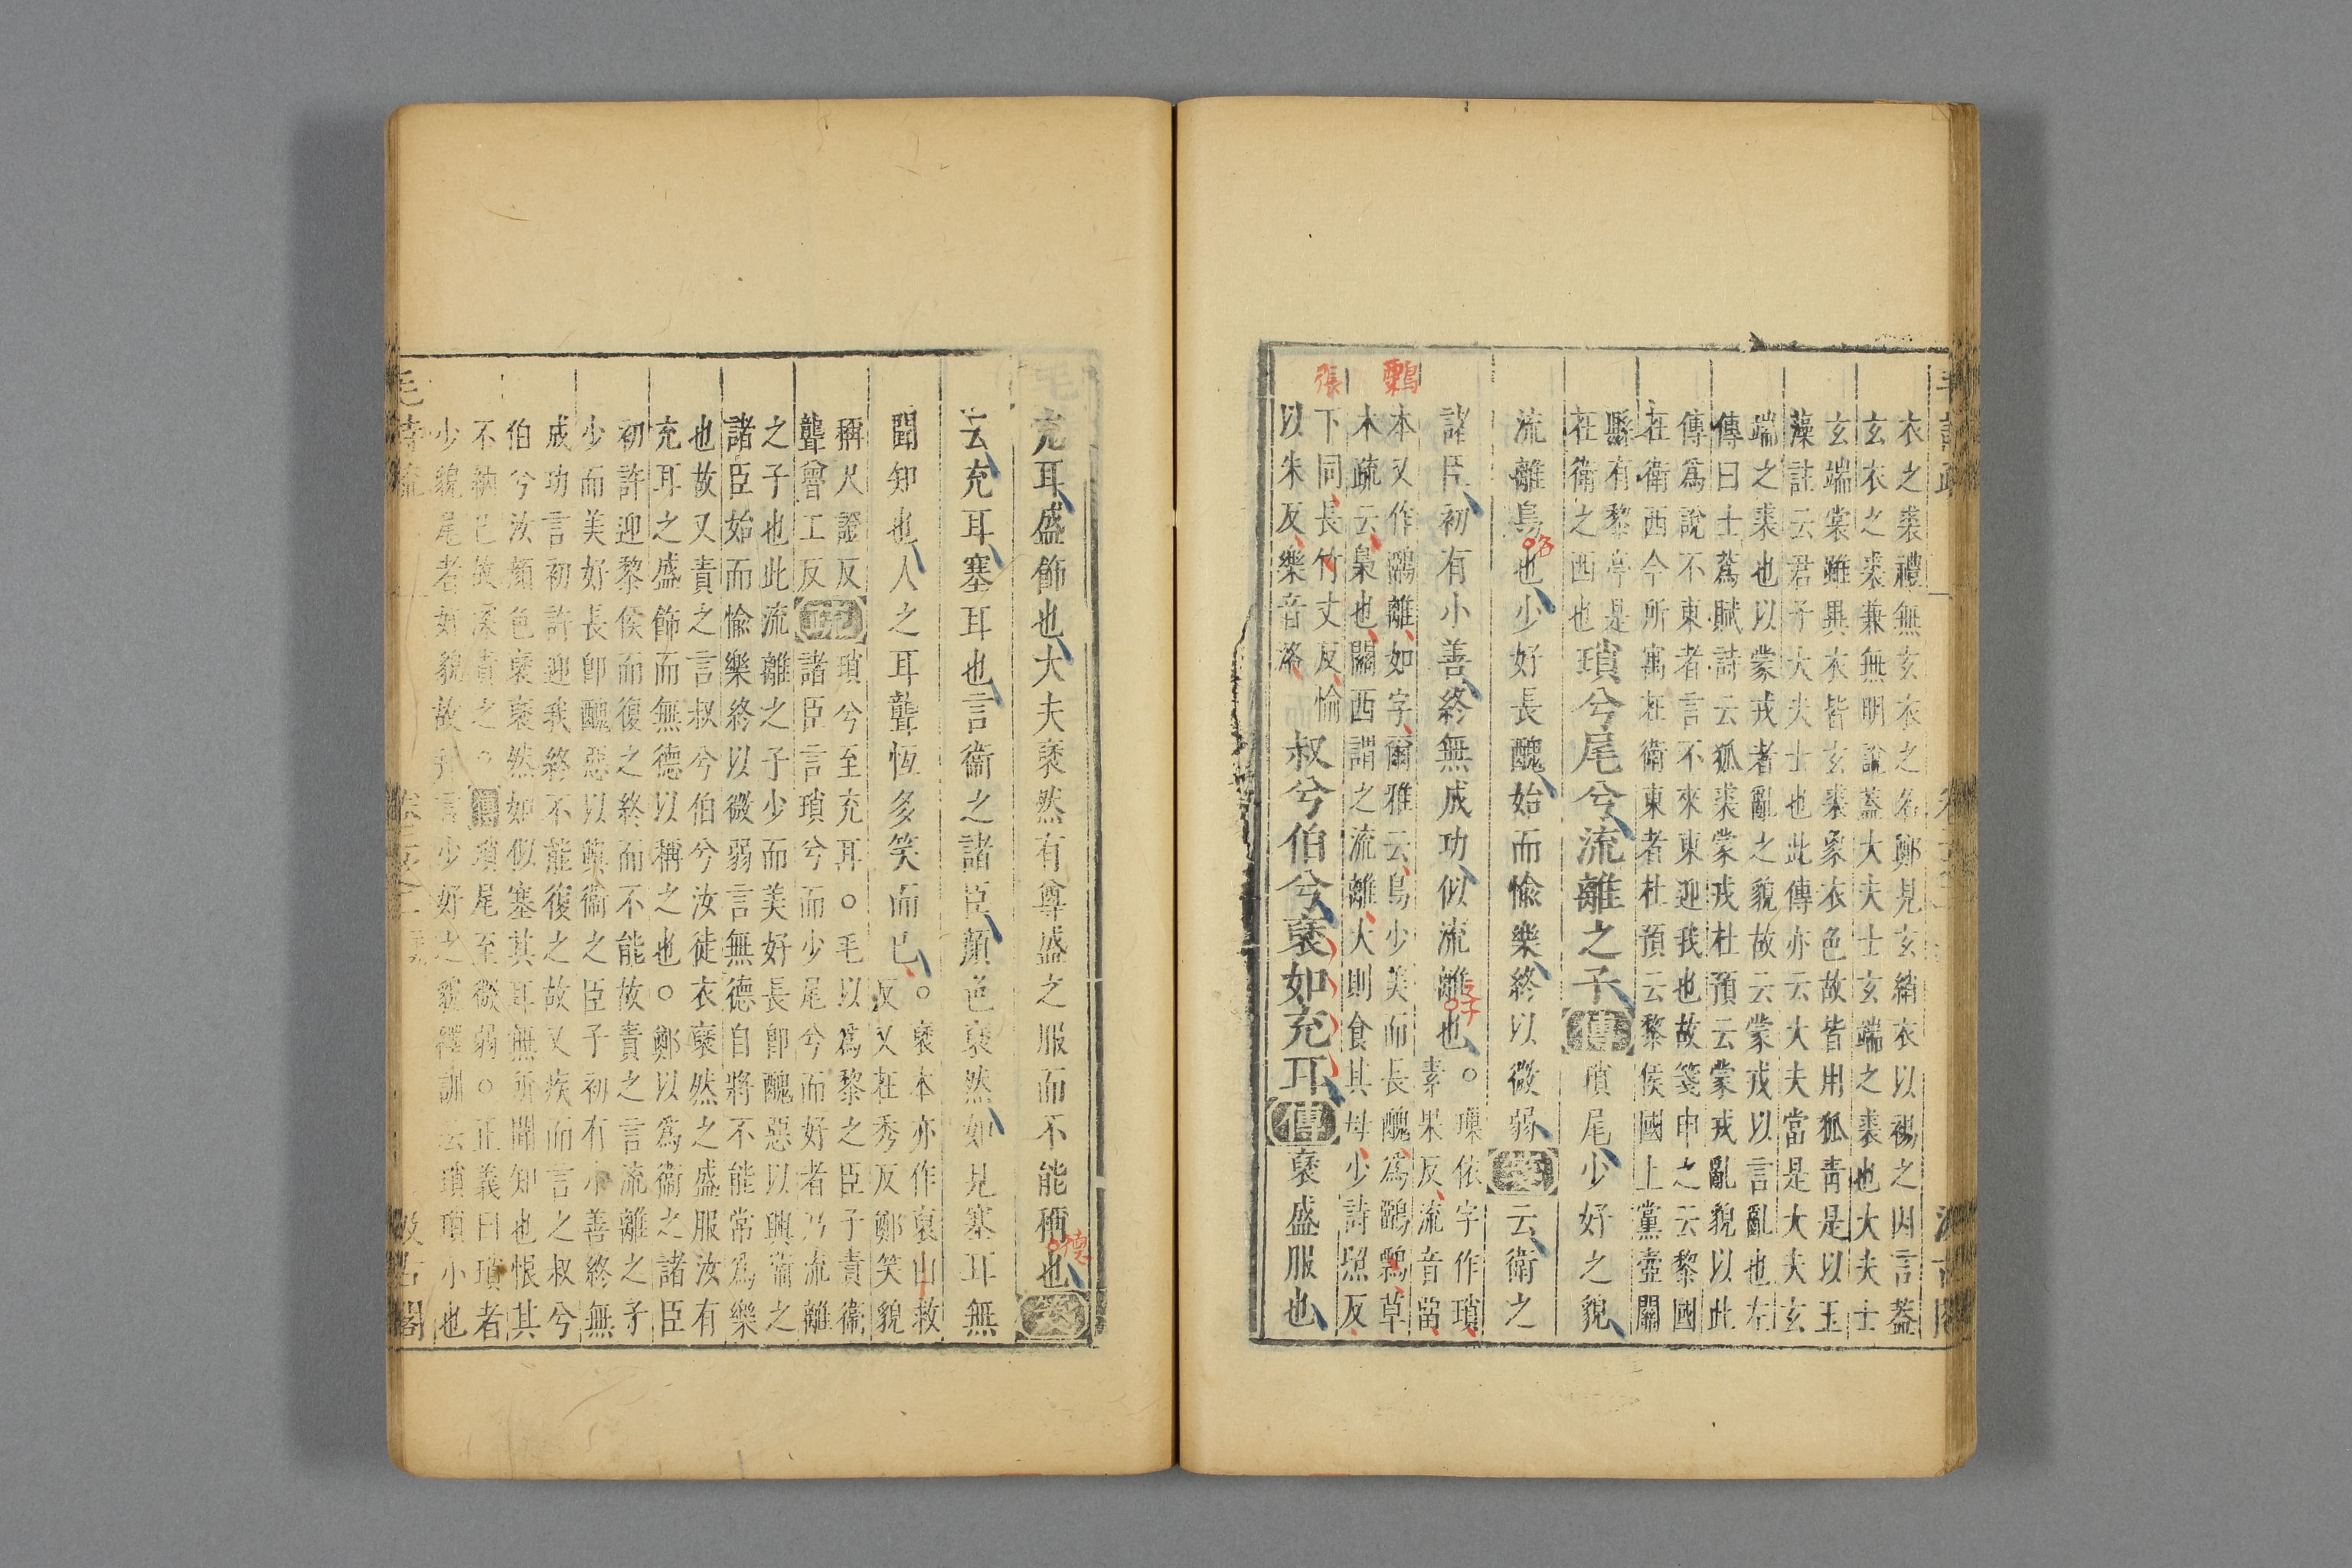 衣之裘禮無玄衣之名鄭見玄綃衣以裼之因言蓋
玄衣之裘兼無明說蓋大夫士玄端之裘也大夫士
玄端裳雖異衣皆玄裘象衣色故皆用狐靑是以玉
藻註云君子大夫士也此傳亦云大夫當是大夫玄
端之裘也以蒙戎者亂之貌故云蒙戎以言亂也左
傳曰士蔿賦詩云狐裘蒙戎杜預云蒙戎亂貌以此
傳爲說不東者言不來東迎我也故箋申之云黎國
在衛西今所寓在衛東者杜預云黎侯國上黨壺關
縣有黎亭是
在衛之西也
瑣兮尾兮流離之子傳瑣尾少好之貌
流離鳥也少好長醜始而愉樂終以微弱箋云衛之
諸臣初有小善終無成功似流離也。璅依字作瑣
素果反流音留
本又作鶹離如字爾雅云鳥少美而長醜爲鶹鷅草
木疏云梟也關西謂之流離大則食其母少詩照反
下同長竹丈反愉
以朱反樂音洛
叔兮伯兮褎如充耳傳褎盛服也
鷅
張
名
之子
充耳盛飾也大夫褎然有尊盛之服而不能稱也箋
德
云充耳塞耳也言衞之諸臣顏色褎然如見塞耳無
聞知也人之耳聾恆多笑而已。褎本亦作裒山救
反又在秀反鄭笑貌
稱尺證反
聾魯工反
疏瑣兮至充耳。毛以爲黎之臣子責衞
諸臣言瑣兮而少尾兮而好者乃流離
之子也此流離之子少而美好長卽醜惡以興衞之
諸臣始而愉樂終以微弱言無德自將不能常爲樂
也故又責之言叔兮伯兮汝徒衣褎然之盛服汝有
充耳之盛飾而無德以稱之也。鄭以爲衞之諸臣
初許迎黎侯而復之終而不能故責之言流離之子
少而美好長卽醜惡以興衞之臣子初有小善終無
成功言初許迎我終不能復之故又疾而言之叔兮
伯兮汝顏色褎褎然如似塞其耳無所聞知也恨其
不納己故深責之。傳瑣尾至微弱。正義曰瑣者
少貌尾者好貌故并言少好之貌釋訓云瑣瑣小也